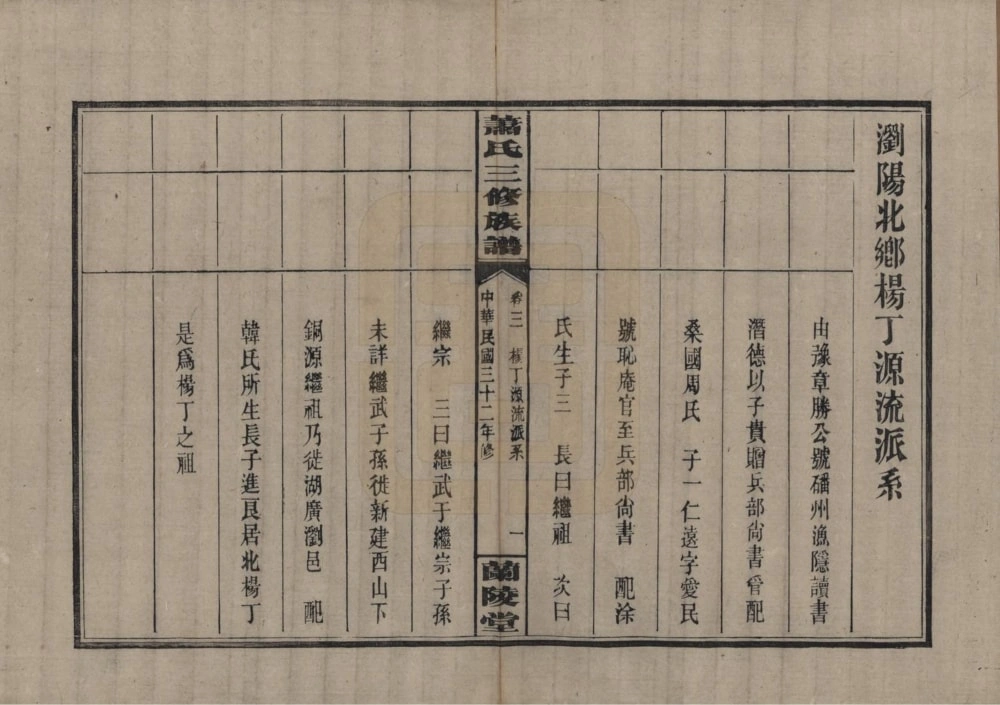 瀏陽北鄉楊丁源流派系
由豫章勝公號磻州漁隱讀書
潛德以子貴贈兵部尙書晉配
桑國周氏 子一仁遠字愛民
號恥庵官至兵部尙書 配涂
氏生子三 長曰繼祖 次曰
蕭氏三修族譜
卷三 楊丁源流派系 一
中華民國三十二年修
蘭陵堂
繼宗 三曰繼武于繼宗子孫
未詳繼武子孫徙新建西山下
銅源繼祖乃徙湖廣瀏邑 配
韓氏所生長子進良居北楊丁
是爲楊丁之祖